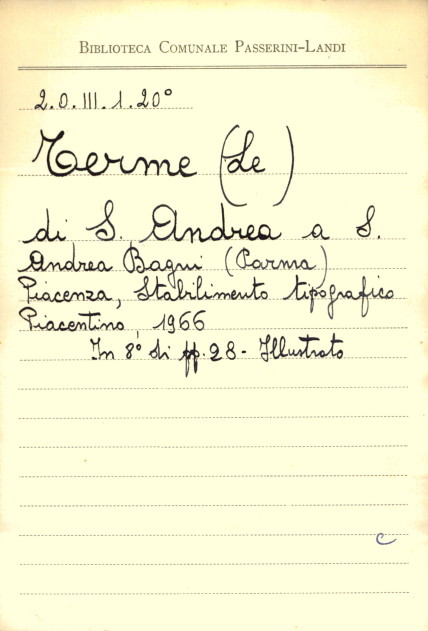 Biblioteca Comunale Passerini-Landi
2.0.III.1.20°
Terme (Le)
di S. Andrea a S.
Andrea Bagni (Parma)
Piacenza, Stabilimento tipografico
Piacentino, 1966
In 8° di pp. 28 - Illustrato
c